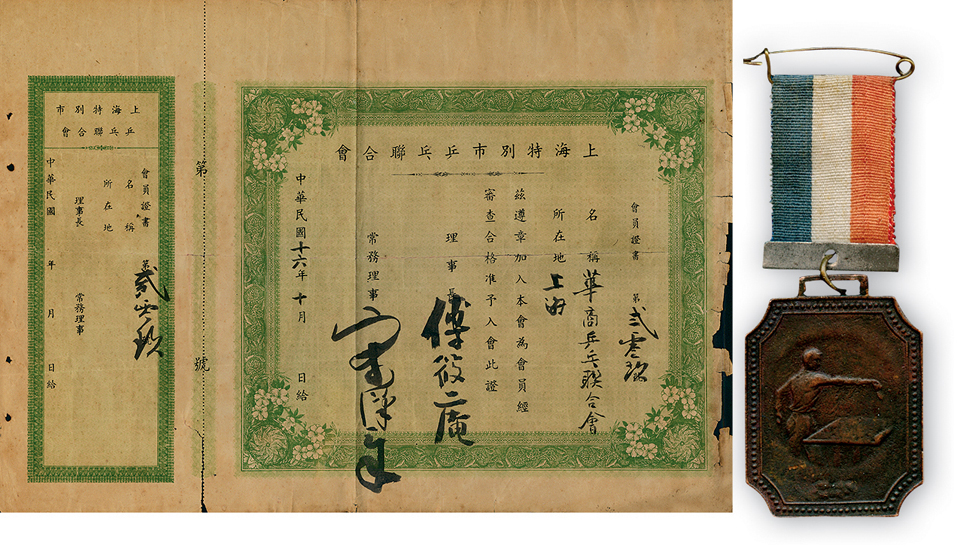 上海特別市乒乓聯合會
會員證書 第弍零玖
名稱 華商乒乓聯合會
所在地 上海
茲遵章加入本會為會員經
審查合格准予入會此證
理事長 傅筱庵
常務理事
中華民國十六年十月 日給
第 號
上海特別市
乒乓聯合會
會員證書 第貳零玖
名稱
所在地
理事長 常務理事
中華民國 年 月 日給